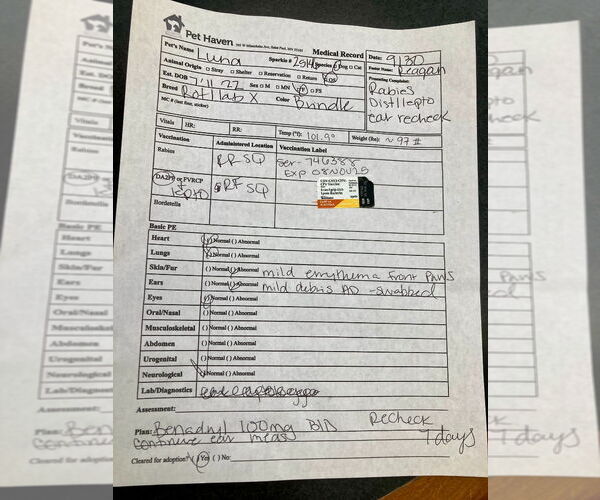 Pet Haven
Medical Record
Date: 9/30
Pet's Name Luna Sparkie # Species Dog Cat
Foster Name: Reagan
Animal Origin Stray Shelter Reservation Return
Presenting Complaint:
Rabies
Dist/lepto
ear recheck
Est. DOB Sex M MN F FS
Breed Rott/lab X Color Brindle
MC # (last four, sticker)
Vitals HR: RR: Temp (°f): 101.9° Weight (lbs): ~ 97 #
Vaccination Administered Location Vaccination Label
Rabies RR SQ Ser- 746388
EXP 08NOV25
DA2PP or FVRCP RF SQ
Bordetella
Basic PE
Heart ( ) Normal ( ) Abnormal
Lungs ( ) Normal ( ) Abnormal
Skin/Fur ( ) Normal ( ) Abnormal mild erythema front paws
Ears ( ) Normal ( ) Abnormal mild debris AD - swabbed
Eyes ( ) Normal ( ) Abnormal
Oral/Nasal ( ) Normal ( ) Abnormal
Musculoskeletal ( ) Normal ( ) Abnormal
Abdomen ( ) Normal ( ) Abnormal
Urogenital ( ) Normal ( ) Abnormal
Neurological ( ) Normal ( ) Abnormal
Lab/Diagnostics
Assessment:
Plan: Benadryl 100mg BID Recheck
continue ear meds 7 days
Cleared for adoption? ( ) Yes ( ) No: